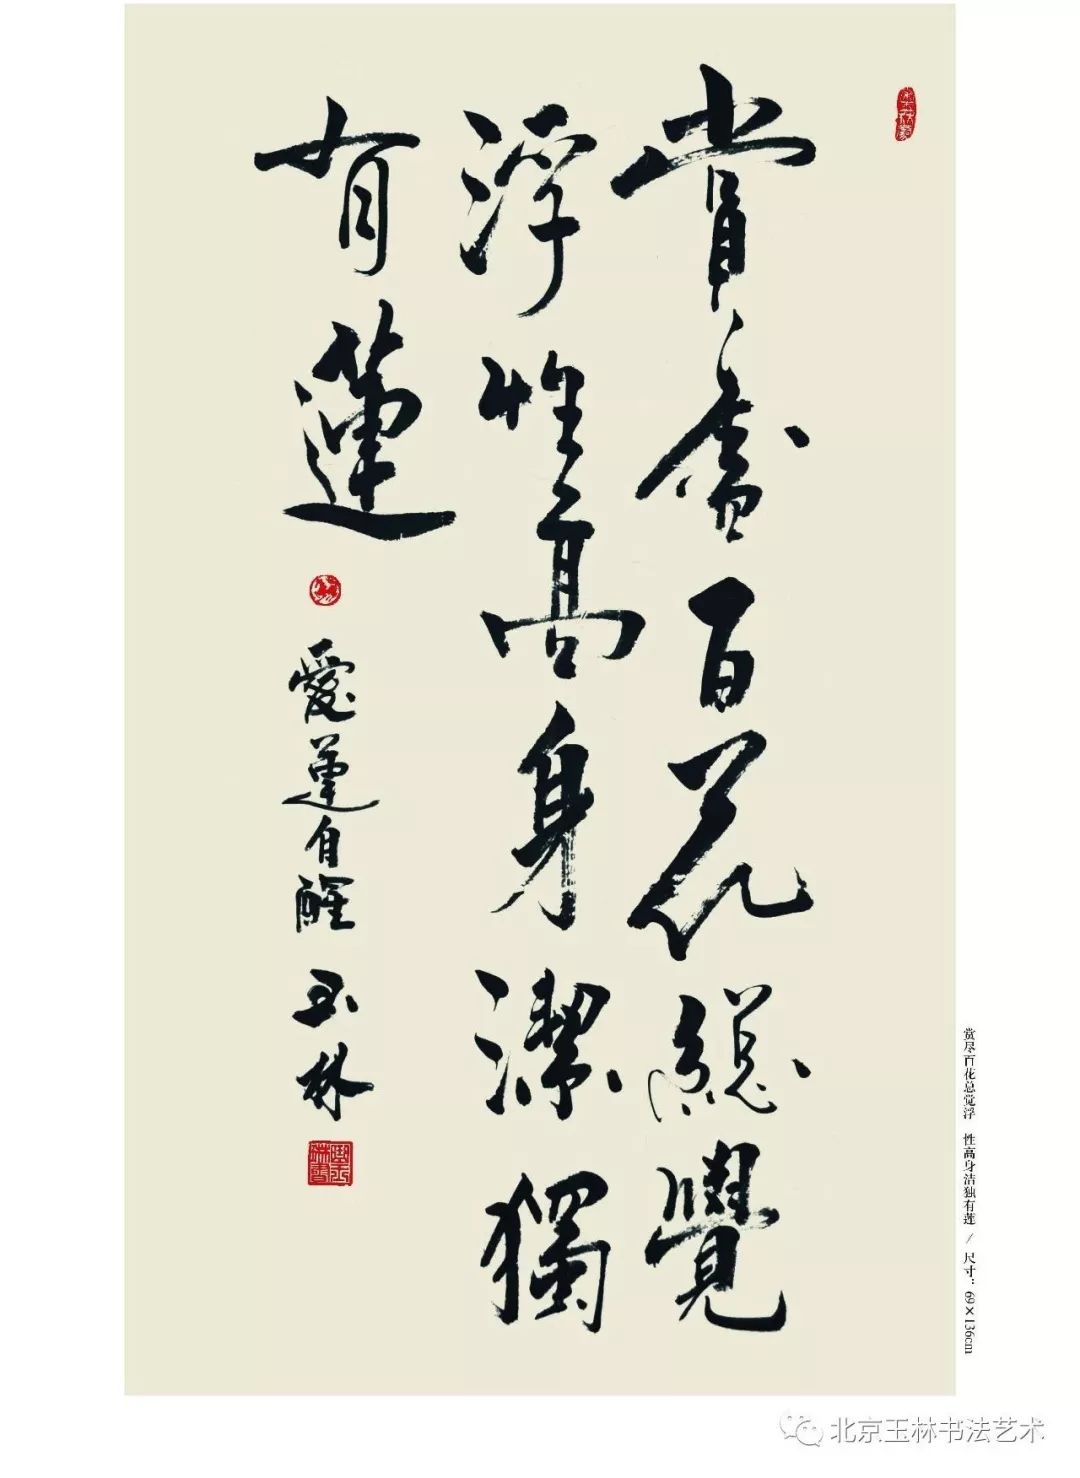 赏盡百花總覺
浮性高身潔獨
有蓮
愛蓮自醒 玉林
赏尽百花总觉浮 性高身洁独有莲 / 尺寸：69×136cm
北京玉林书法艺术